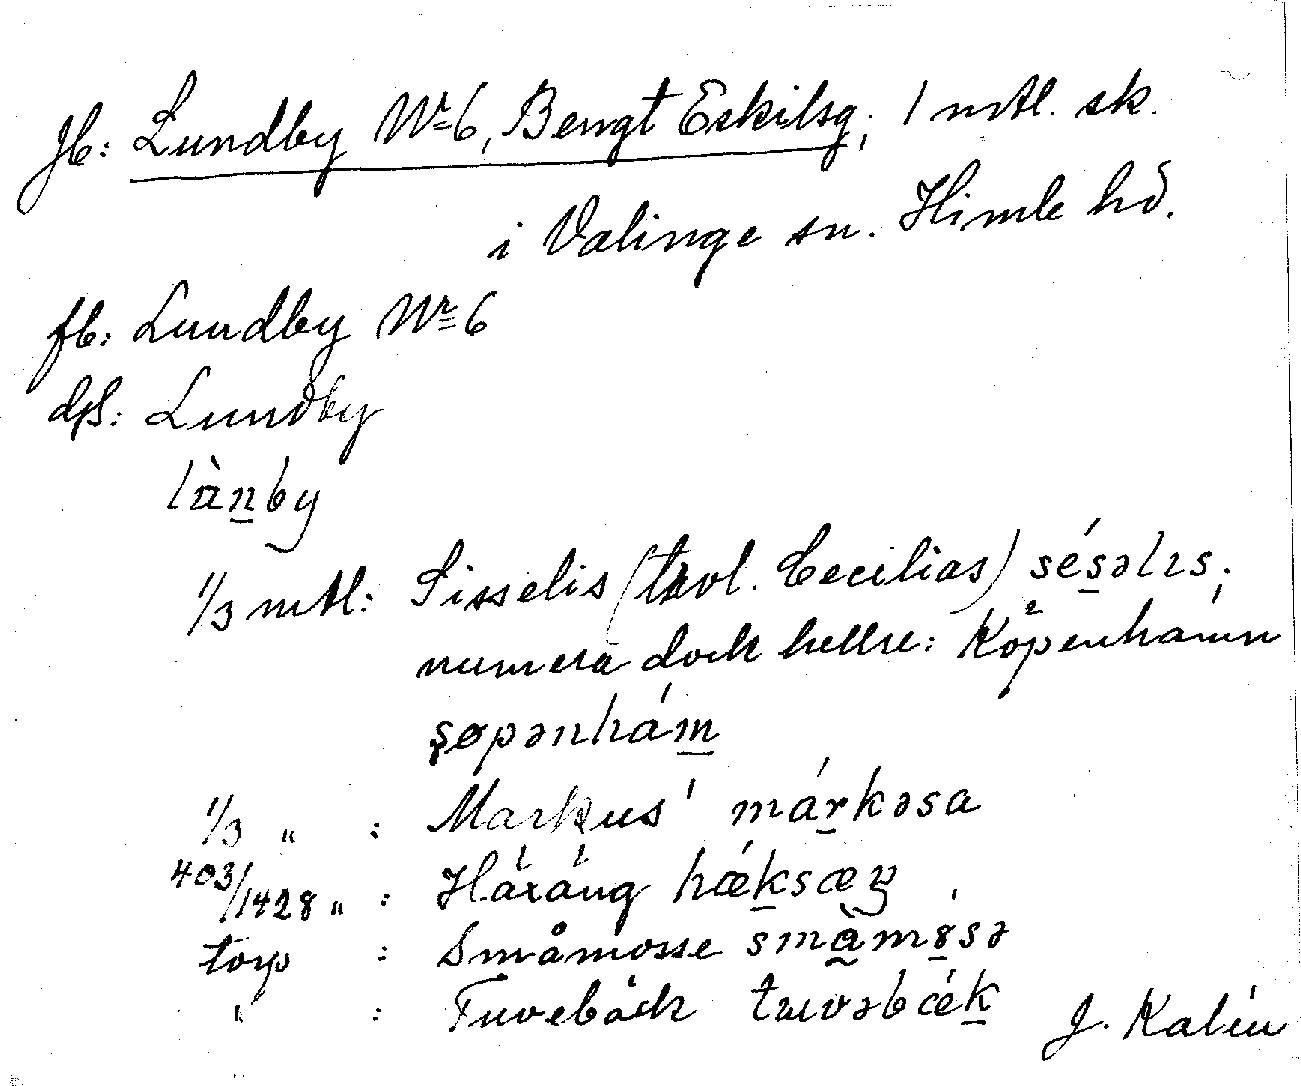 Jb: Lundby Nr 6, Bengt Eskilsg; 1 mtl. sk.
i Valinge sn. Himle hd.
fb: Lundby Nr 6
dfs: Lundby
lànby
1/3 mtl: Sisselis (trol. Cecilias) sésəlɪs;
numera dock hellre: Köpenhamn
ʂøpənhám
1/3 " : Markus' márkəsa
403/1428 " : Häxäng hæ´ksæŋ
torp : Småmosse småmósə
" : Tuvebäck tuvəbæ´k
J. Kalén